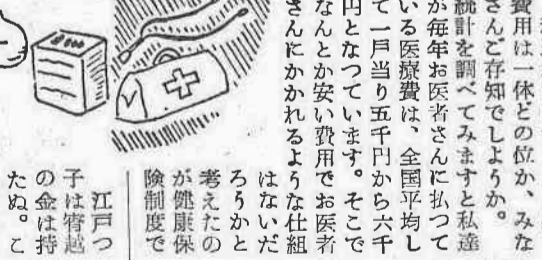 費用は一体どの位か、みな
さんご存知でしようか。
統計を調べてみますと私達
が毎年お医者さんに払つて
いる医療費は、全国平均し
て一戸当り五千円から六千
円となつています。そこで
なんとか安い費用でお医者
さんにかかれるような仕組
はないだ
ろうかと
考えたの
が健康保
険制度で
江戸つ
子は宵越
の金は持
たぬ。こ